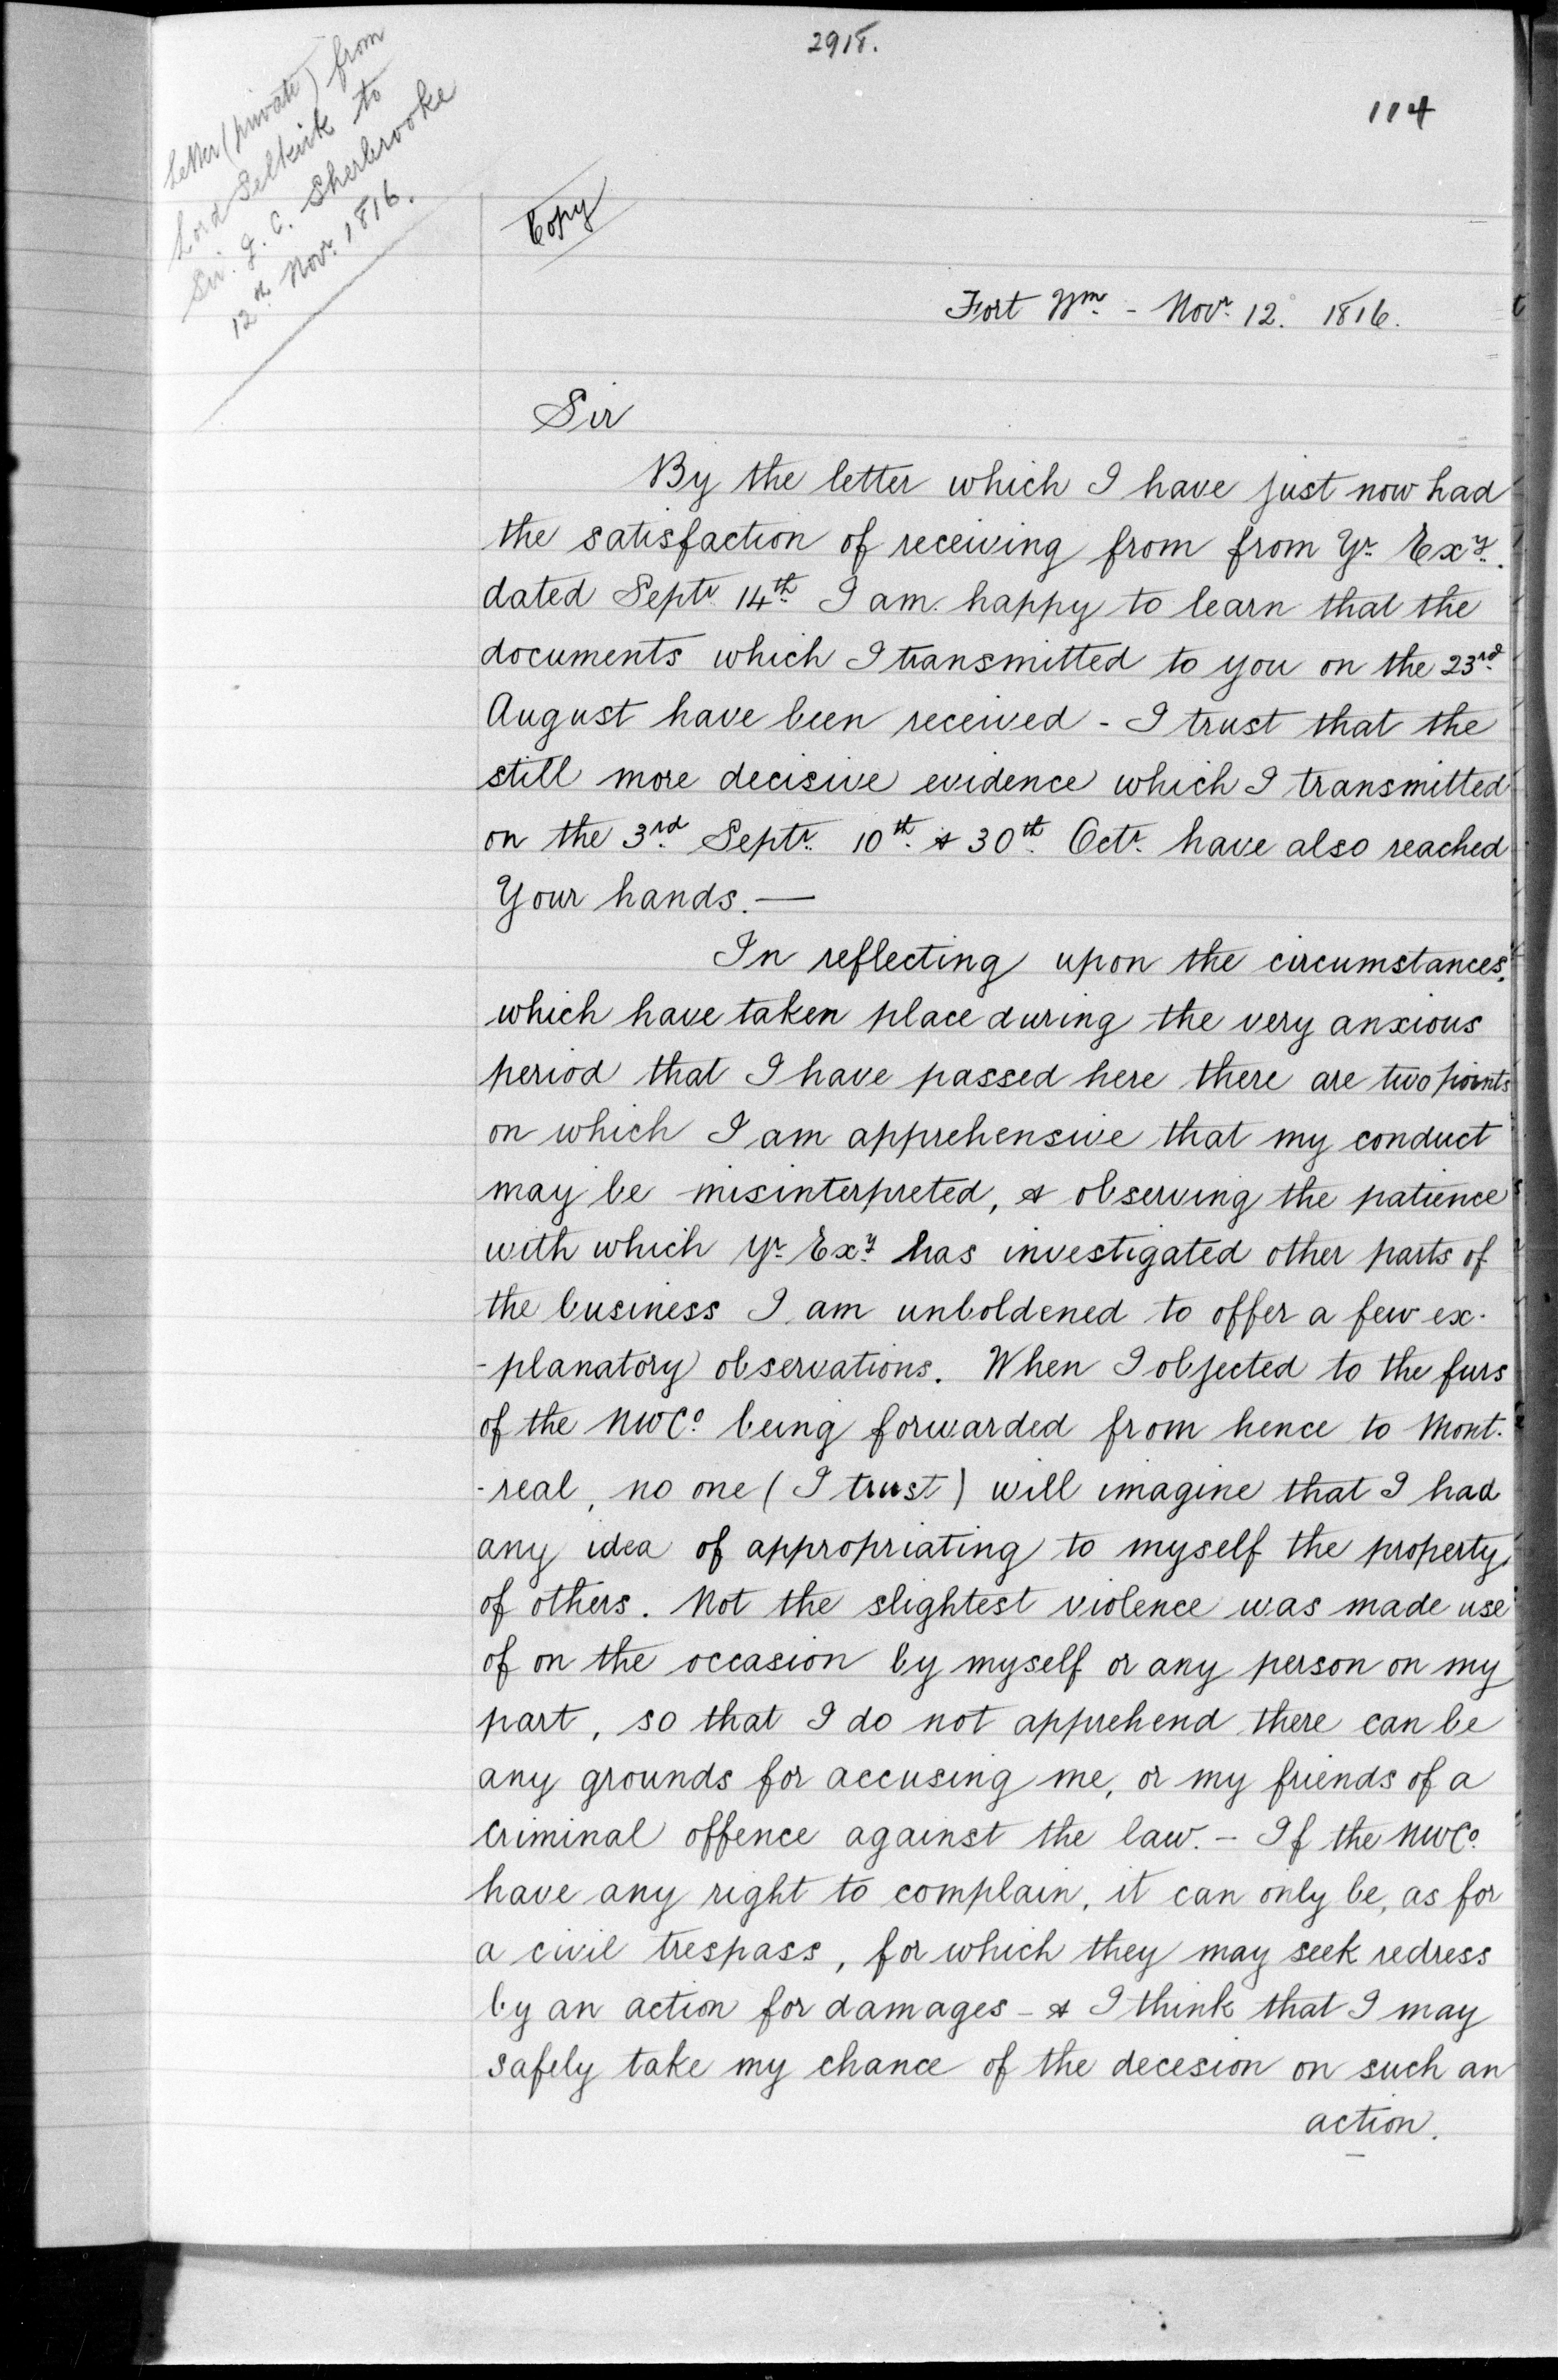 2918.
114
Letter (private) from
Lord Selkirk to
Sir. J. C. Sherbrooke
12th Novr. 1816.
Copy
Fort Wm. - Novr. 12. 1816.
Sir
By the letter which I have just now had
the satisfaction of receiving from from Yr. Exy.
dated Septr. 14th. I am happy to learn that the
documents which I transmitted to you on the 23rd.
August have been received - I trust that the
still more decisive evidence which I transmitted
on the 3rd. Septr. 10th. & 30th. Octr. have also reached
Your hands. —
In reflecting upon the circumstances.
which have taken place during the very anxious
period that I have passed here there are two points
on which I am apprehensive that my conduct
may be misinterpreted, & observing the patience
with which Yr. Exy. has investigated other parts of
the business I am unboldened to offer a few ex-
-planatory observations. When I objected to the furs
of the NWCo. being forwarded from hence to Mont-
-real, no one (I trust) will imagine that I had
any idea of appropriating to myself the property
of others. Not the slightest violence was made use
of on the occasion by myself or any person on my
part, so that I do not apprehend there can be
any grounds for accusing me, or my friends of a
criminal offence against the law. - If the NWCo.
have any right to complain, it can only be, as for
a civil trespass, for which they may seek redress
by an action for damages - & I think that I may
safely take my chance of the decesion on such an
action.